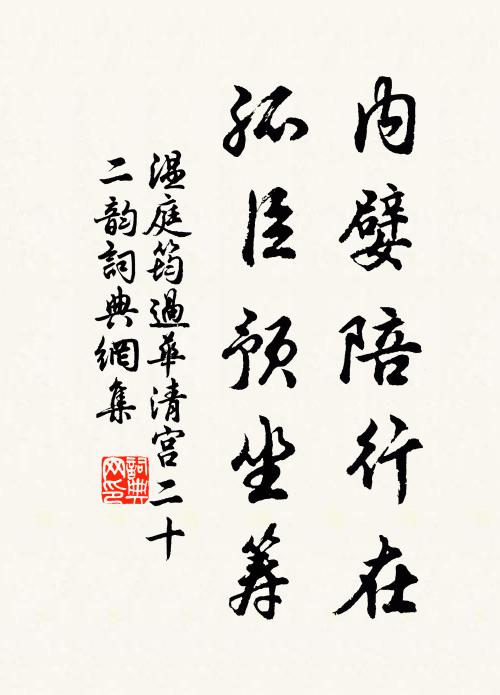 內嬖陪行在
孤臣預坐筹
温庭筠過華清宮二十
二韵詞典網集
詞典网印